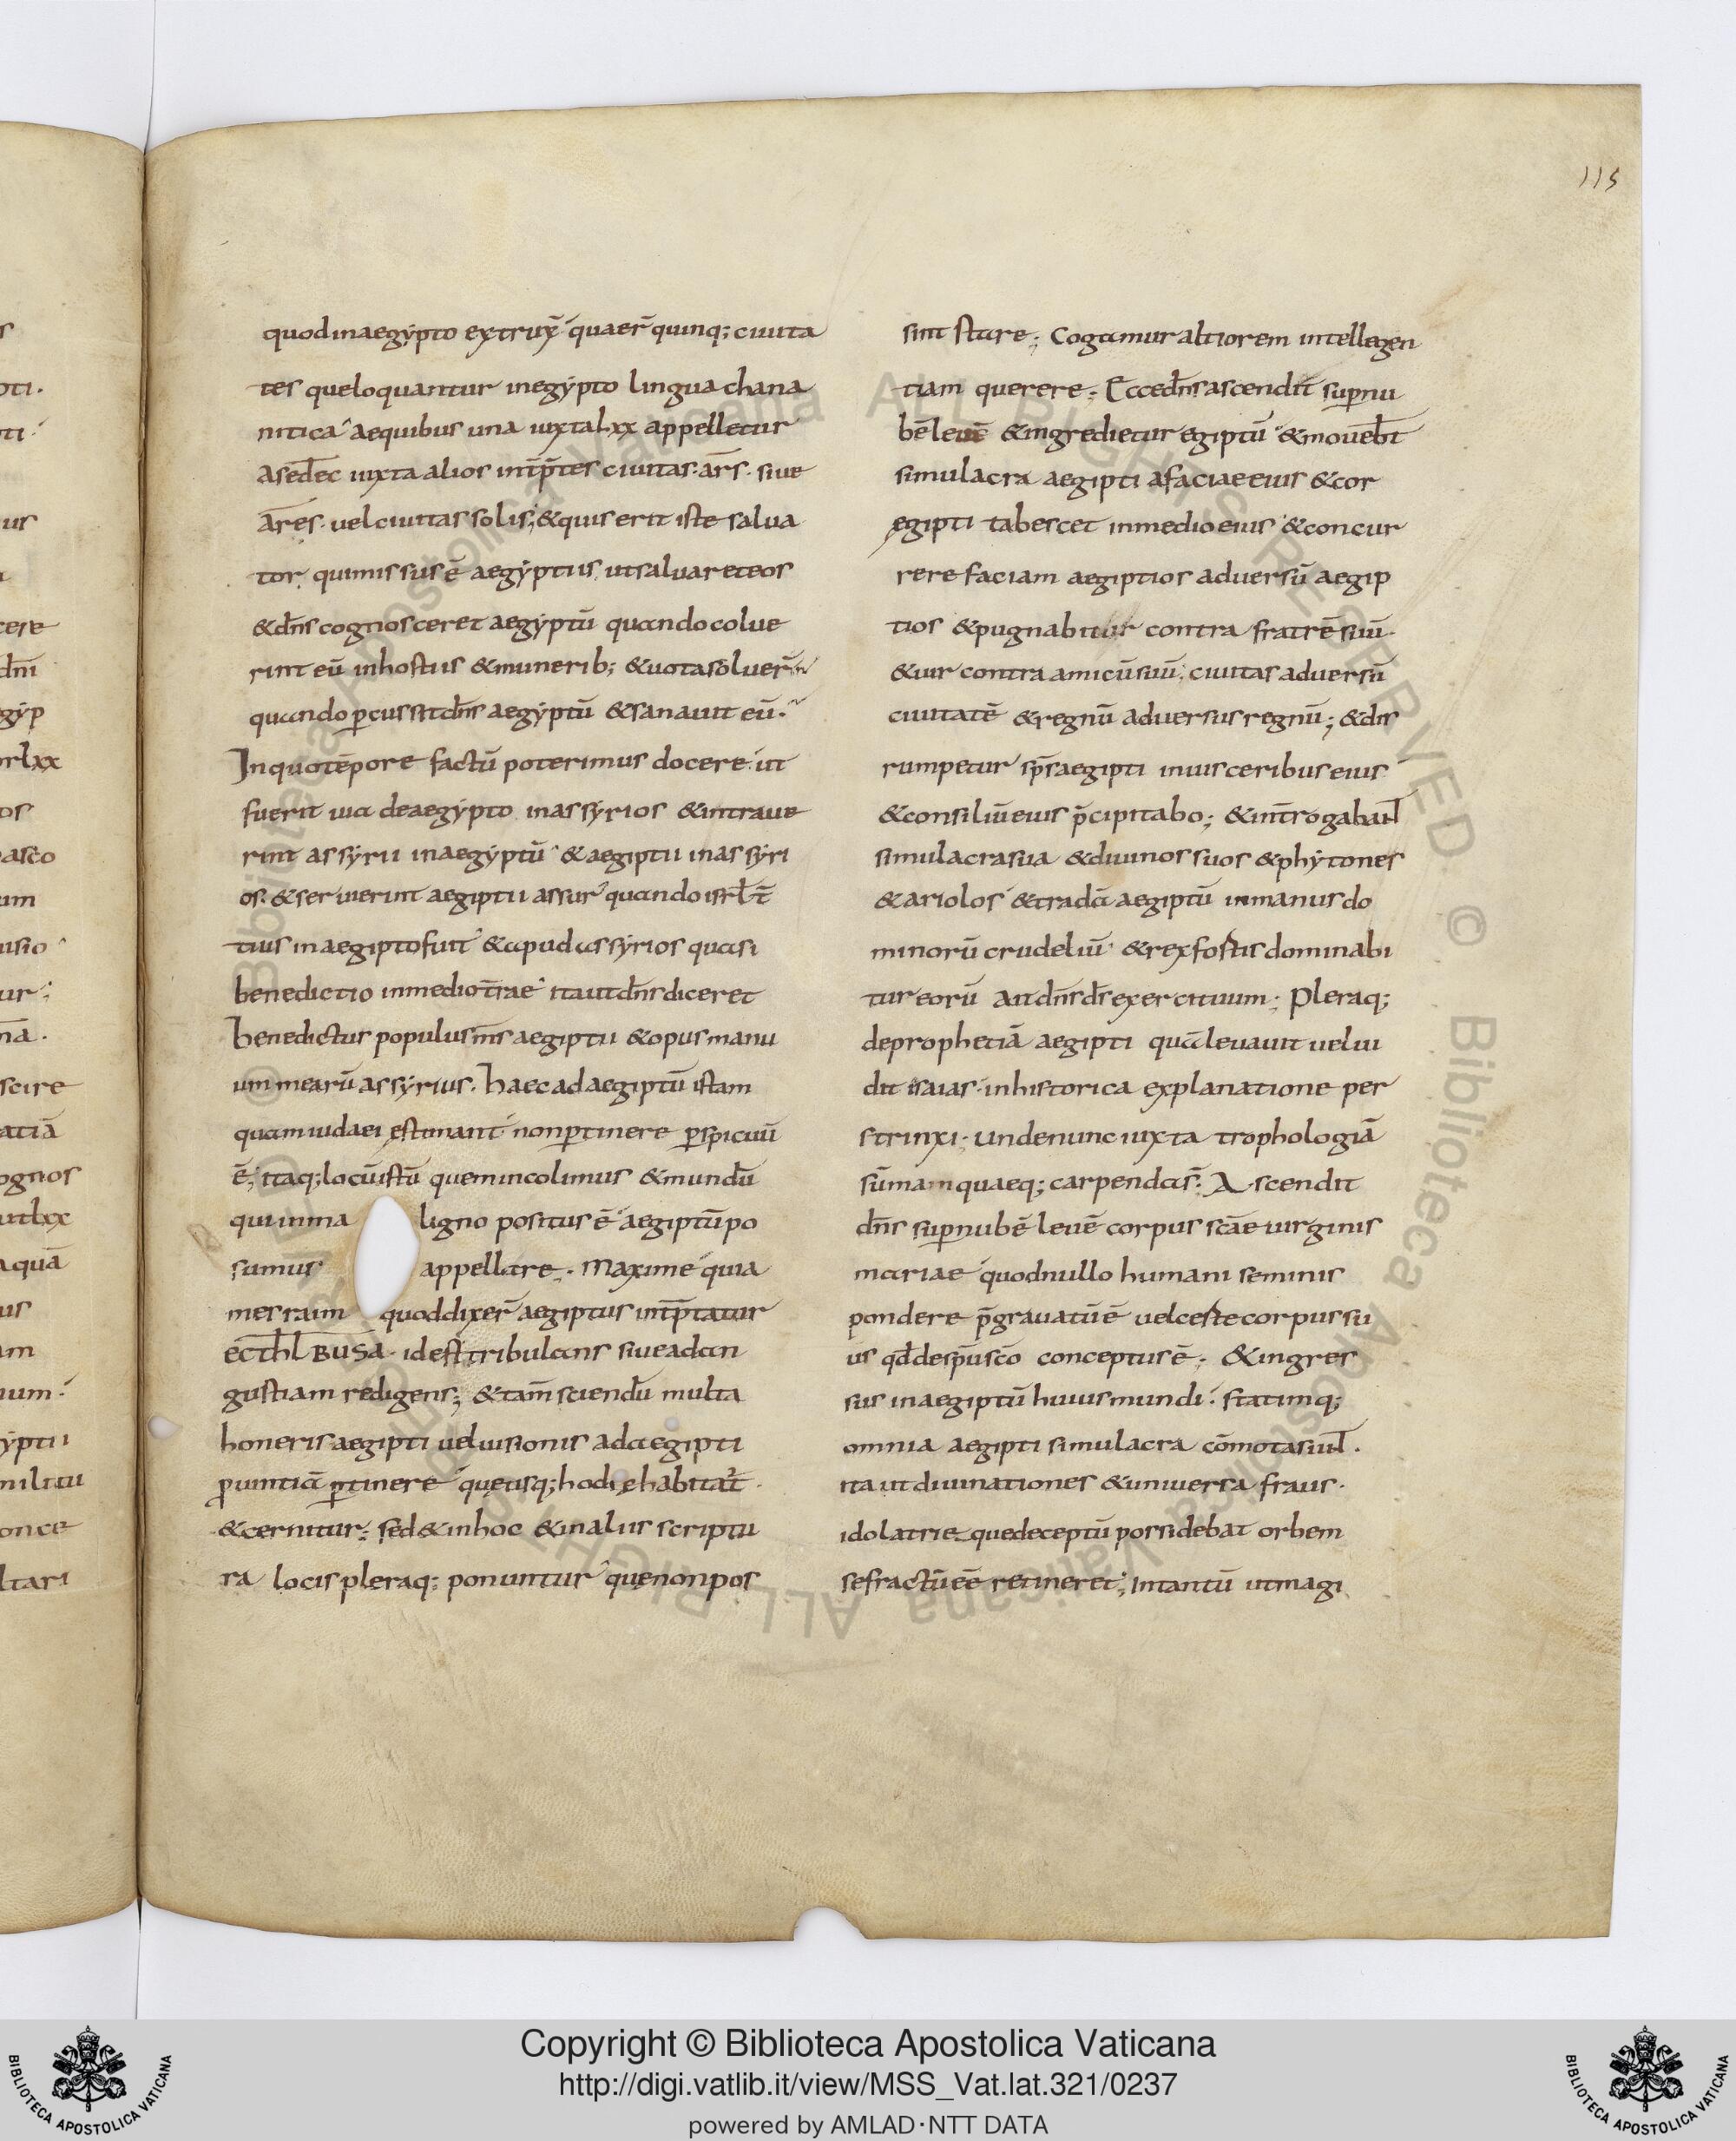 115
quodinaegẏpto extrux̄ quaer̄ quinq; ciuita
tes queloquantur inegẏpto lingua chana
nitica aequibus una iuxtalxx appelletur
asedec iuxta alios int̄p̄tes ciuitas. ars. siue
ares. uel ciuitas solis; & quis erit iste salua
tor, quimissus ē aegẏptiis, utsaluareteos
& dn̄s cognosceret aegẏptū quando colue
rint eū inhostiis & munerib; & uotasoluer̄
quando ꝑcussit dn̄s aegẏptū & sanauit eū.
Inquotēpore factū poterimus docere. ut
fuerit uia deaegẏpto inassẏrios & intraue
rint assẏrii inaegẏptū & aegiptii inassẏri
os. & seruierint aegiptii assur quando isrl̄ t̄
tius inaegiptofuit & apud assẏrios quasi
benedictio inmediot̄rae itaut dn̄s diceret
benedictus populus m̄s aegiptii & opus manu
um mearū assẏrius. haec ad aegiptū istam
quam iudaei ęstimant nonꝑtinere ꝑspicuū
ē; itaq; locūistū quemincolimus & mundū
quiinma ligno positus ē aegiptū po
sumus appellare. Maxime quia
mesraim quoddixer̄ aegiptus int̄p̄tatur
ECTHLIBUSA. idest tribulans siueadan
gustiam redigens; & tam̄ sciendū multa
honeris aegipti uel uisionis ad aegipti
ꝓuintiā ꝑtinere quęusq; hodię habitat̄
& cernitur; sed & inhoc & inaliis scriptu
ra locis pleraq; ponuntur quęnonpos
sint stare; Cogamur altiorem intellegen
tiam querere; Ecce dn̄s ascendit suꝑnu
bē leuē & ingredietur egiptū & mouebt̄
simulacra aegipti afacie eius & cor
ęgipti tabescet inmedio eius & concur
rere faciam aegiptios aduersū aegip
tios & pugnabitur contra fratrē suū.
& uir contra amicū suū; ciuitas aduersū
ciuitatē & regnū aduersus regnū; & dis
rumpetur sp̄s aegipti inuisceribus eius
& consiliū eius p̄cipitabo; & int̄rogabunt
simulacra sua & diuinos suos & phẏtones
& ariolos & tradā aegiptū inmanus do
minorū crudeliū & rex fortis dominabi
tur eorū ait dn̄s ds̄ exercituum; Pleraq;
deprophetiā aegipti quā leuauit uel ui
dit isaias. inhistorica explanatione per
strinxi; unde nunc iuxta trophologiā
sūmam quaeq; carpendas̄; Ascendit
dn̄s suꝑnubē leuē corpus scāe uirginis
mariae quodnullo humani seminis
pondere p̄grauatū ē uelceste corpus su
us qd̄ despūscō conceptus ē; & ingres
sus inaegiptū huius mundi. statimq;
omnia aegipti simulacra cōmota sunt.
ita ut diuinationes & uniuersa fraus.
idolatrie quedeceptū possidebat orbem
sefractū eē retineret; Intantū utmagi
Copyright © Biblioteca Apostolica Vaticana
http://digi.vatlib.it/view/MSS_Vat.lat.321/0237
powered by AMLAD·NTT DATA
BIBLIOTECA APOSTOLICA VATICANA
BIBLIOTECA APOSTOLICA VATICANA